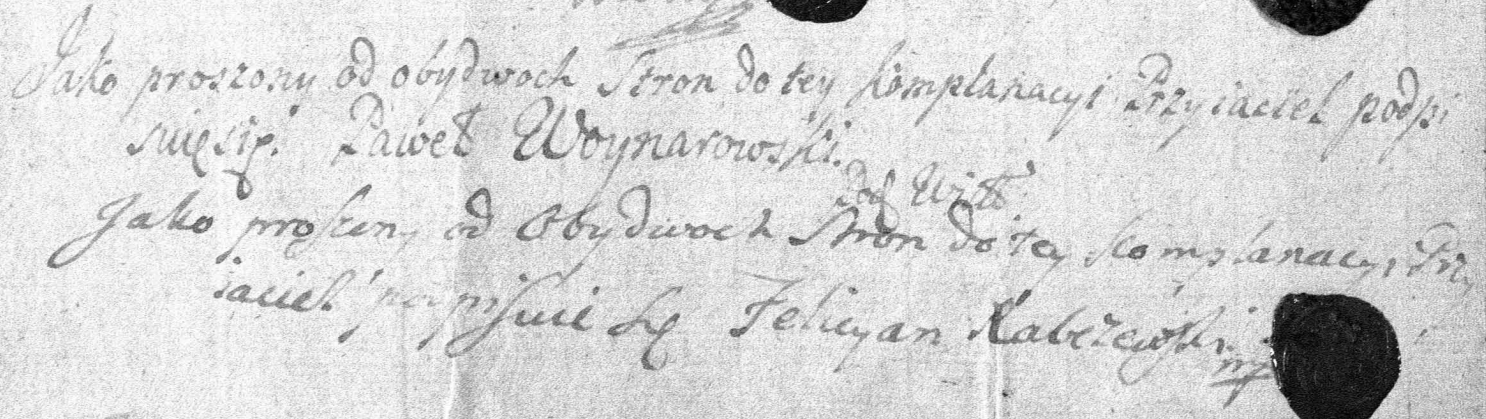 Jako proszony od obydwoch Stron do tey komplanacyi Przyiaciel podpi
suięsię. Paweł Woynarowski.
Jako proszeny od Obydwoch Stron do tey komplanacyi Przy
iaciel potpisuie się Felicyan
mp